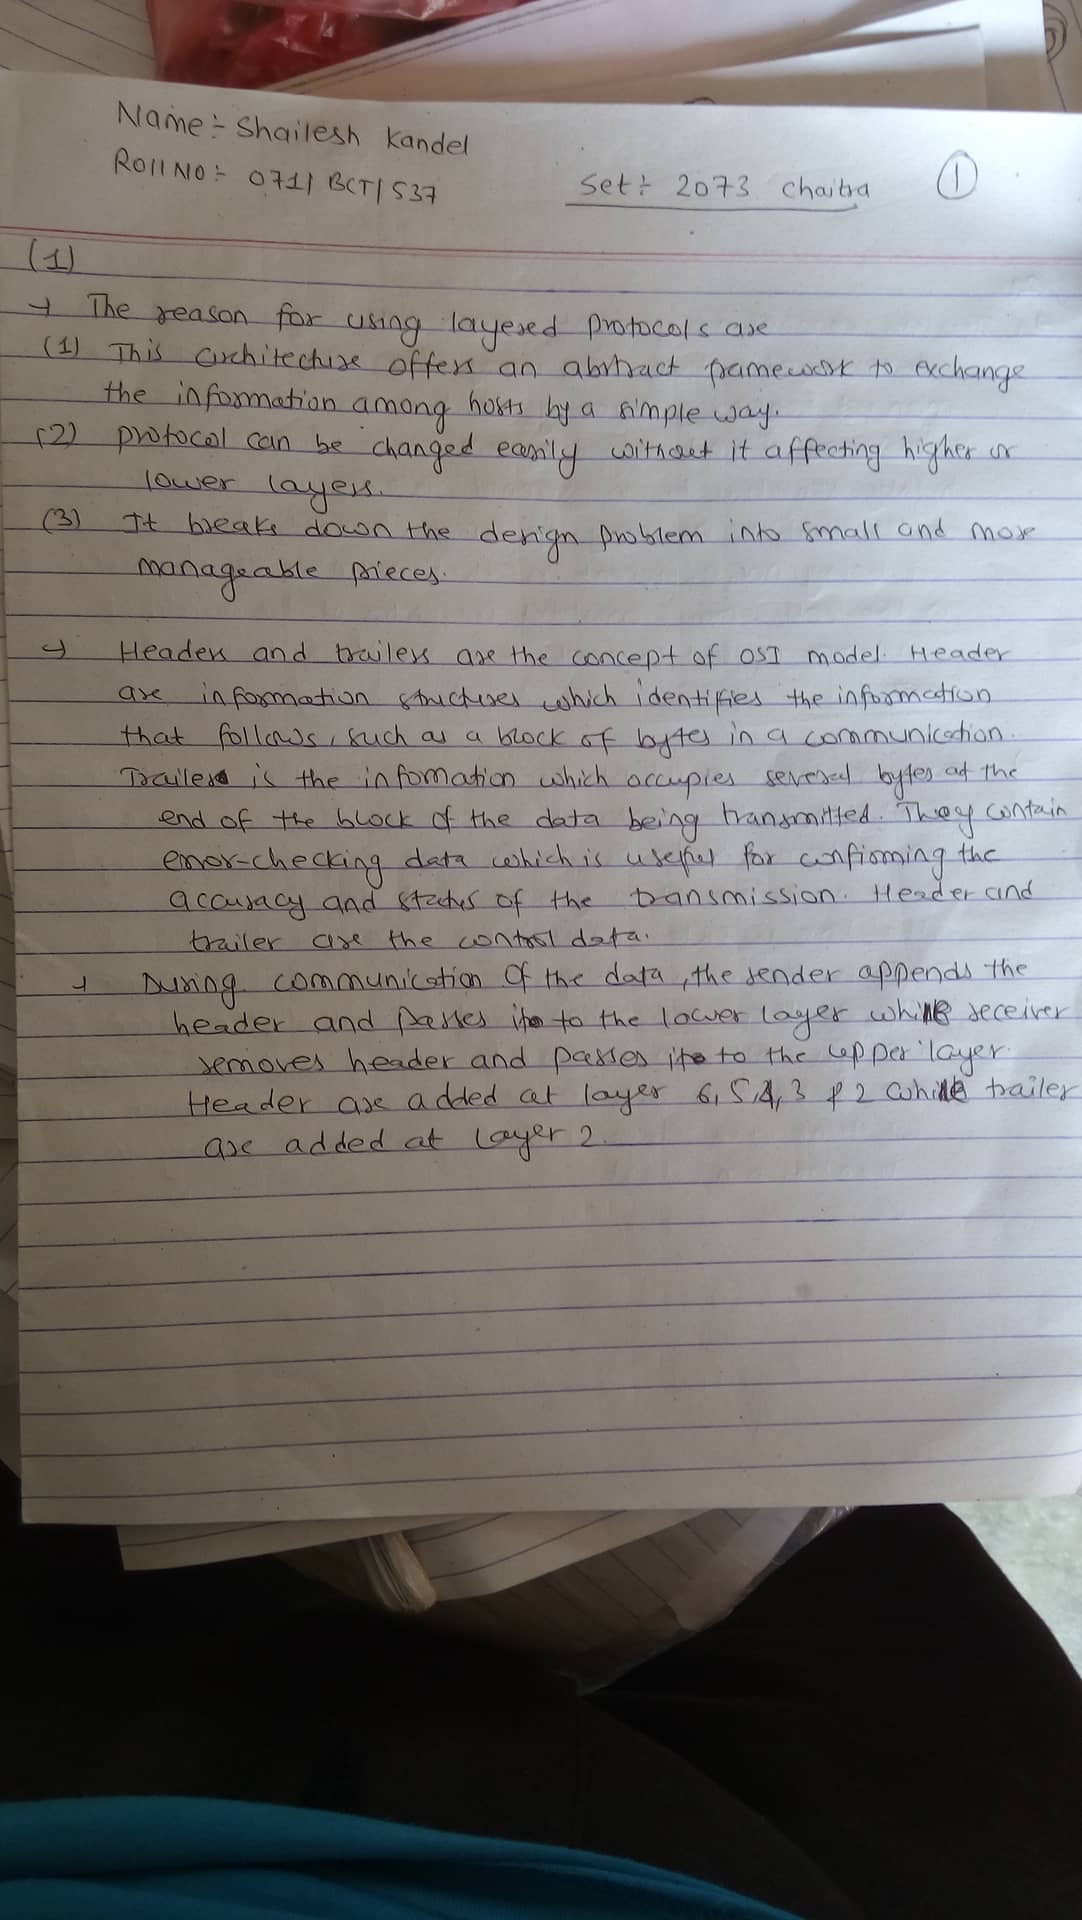 Name:- Shailesh Kandel
Roll NO:- 071/BCT/537
Set:- 2073 Chaitra
1
(1)
→ The reason for using layered protocols are
(1) This architecture offers an abstract framework to exchange
the information among hosts by a simple way.
(2) protocol can be changed easily without it affecting higher or
lower layers.
(3) It breaks down the design problem into small and more
manageable pieces.
→ Headers and trailers are the concept of OSI model. Header
are information structures which identifies the information
that follows, such as a block of bytes in a communication.
Trailer is the infomation which occupies several bytes at the
end of the block of the data being transmitted. They contain
error-checking data which is useful for confirming the
accuracy and status of the transmission. Header and
trailer are the control data.
→ During communication of the data, the sender appends the
header and passes it to the lower layer while receiver
removes header and passes it to the upper layer.
Header are added at layer 6, 5, 4, 3 & 2 while trailer
are added at layer 2.